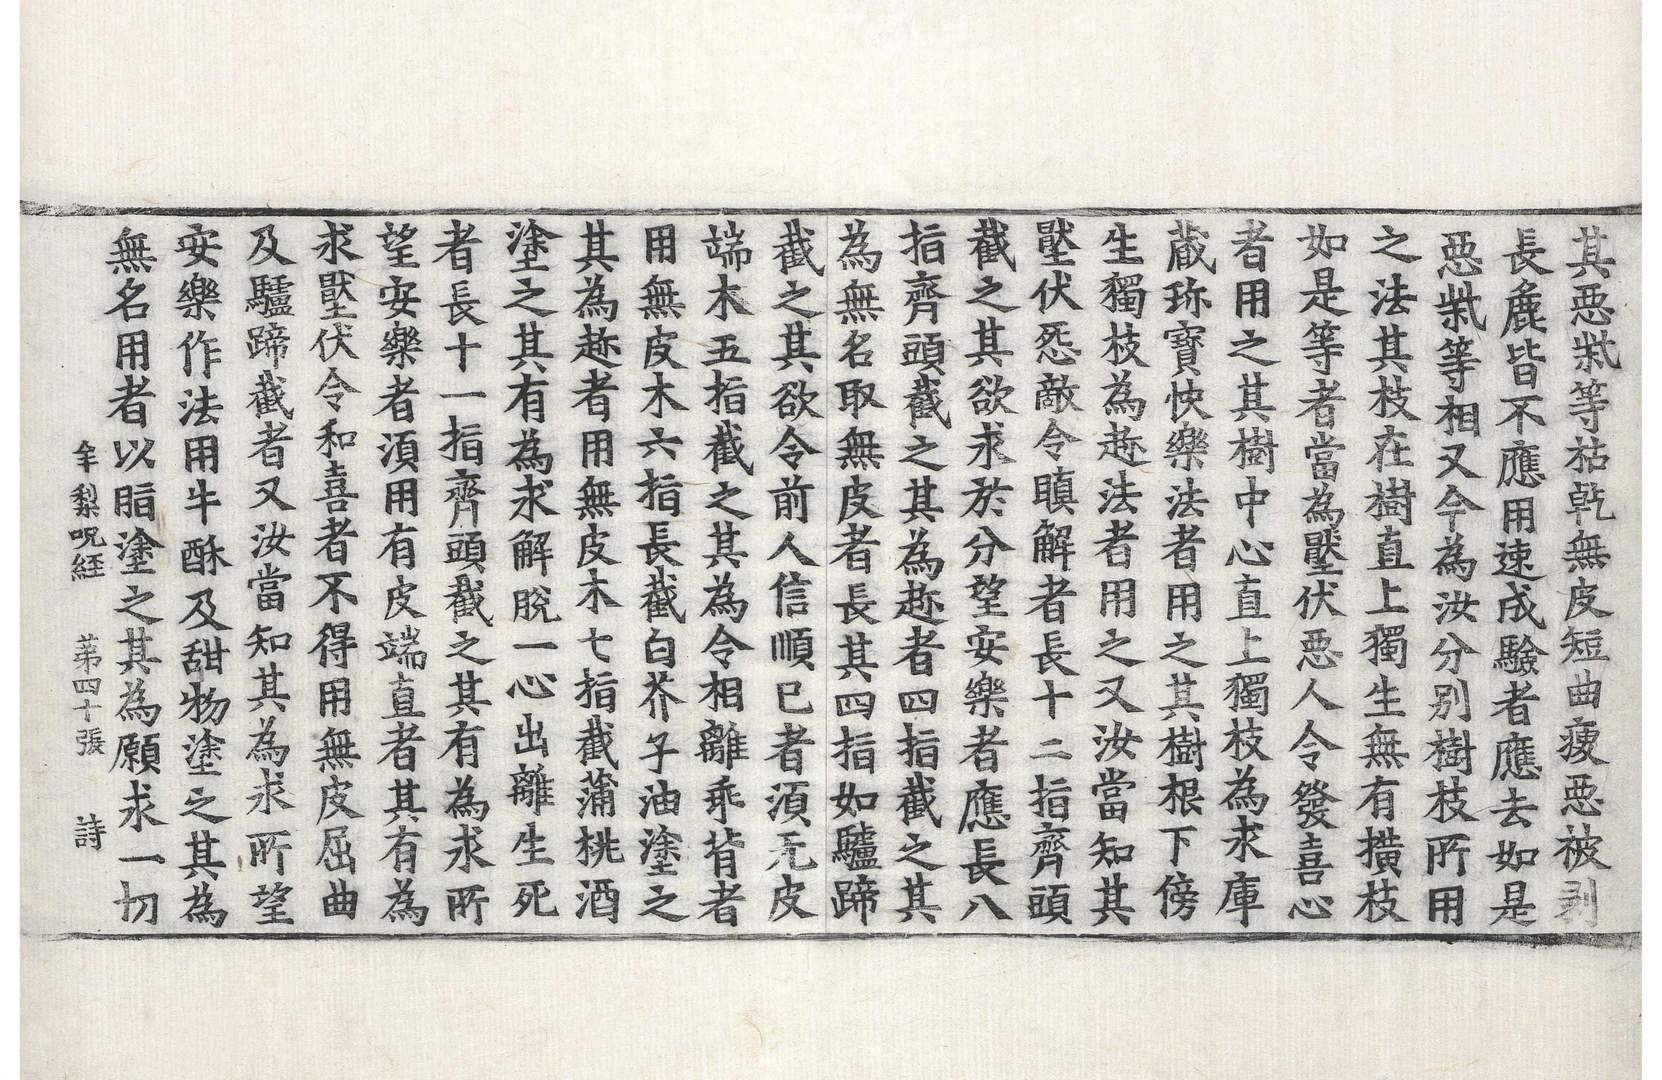 其惡柴等祜乾無皮短曲瘦惡被剥
長麁皆不應用速成驗者應去如是
惡柴等相又今為汝分別樹枝所用
之法其枝在樹直上獨生無有撗枝
如是等者當為壓伏惡人令發喜心
者用之其樹中心直上獨枝為求庫
藏珎寶快樂法者用之其樹根下傍
生獨枝為趂法者用之又汝當知其
壓伏怨敵令瞋解者長十二指齊頭
截之其欲求於分望安樂者應長八
指齊頭截之其為趂者四指截之其
為無名取無皮者長其四指如驢蹄
截之其欲令前人信順已者湏无皮
端木五指截之其為令相離乖背者
用無皮木六指長截白芥子油塗之
其為趂者用無皮木七指截蒲桃酒
塗之其有為求解脫一心出離生死
者長十一指齊頭截之其有為求所
望安樂者湏用有皮端直者其有為
求壓伏令和喜者不得用無皮屈曲
及驢蹄截者又汝當知其為求所望
安樂作法用牛酥及甜物塗之其為
無名用者以脂塗之其為願求一切
牟梨呪経 苐四十張 詩